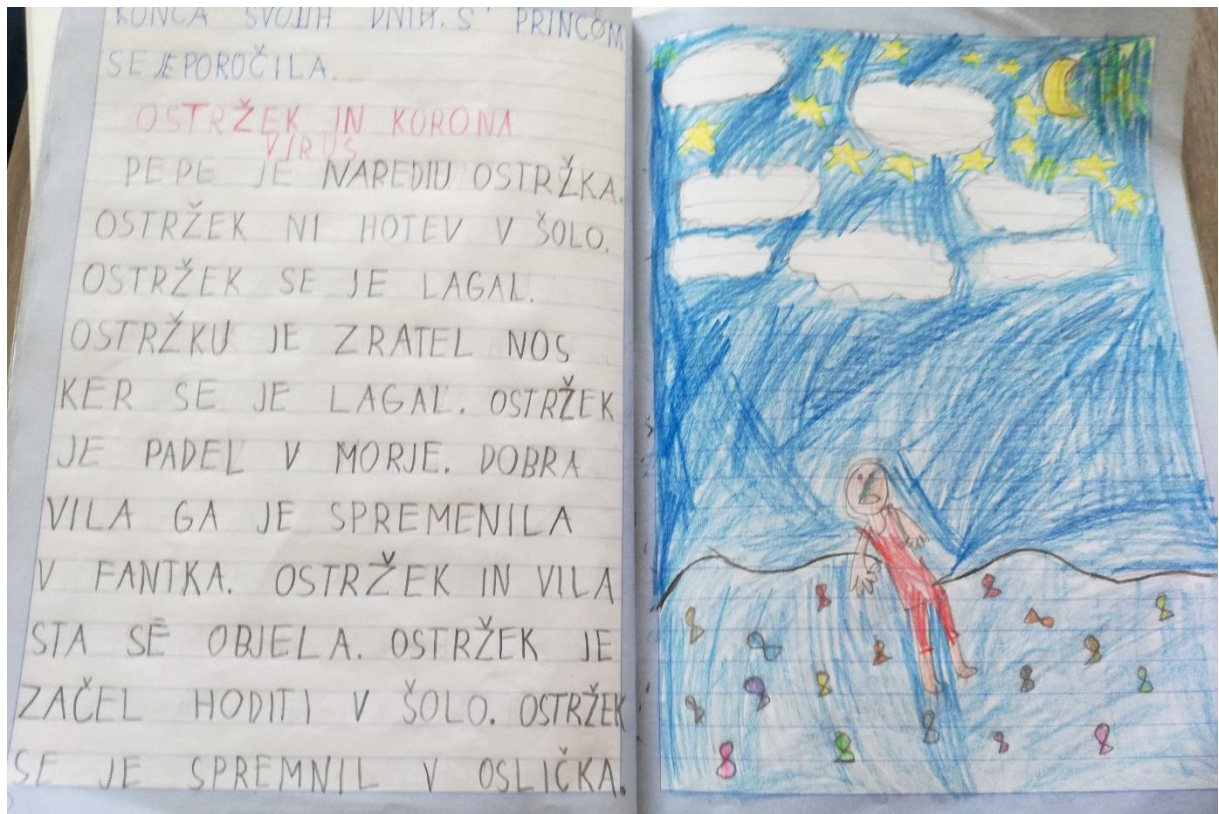 KONCA SVOJIH DNIH. S PRINCOM
SE JE POROČILA.
OSTRŽEK IN KORONA
VIRUS
PEPE JE NAREDIU OSTRŽKA.
OSTRŽEK NI HOTEV V ŠOLO.
OSTRŽEK SE JE LAGAL.
OSTRŽKU JE ZRATEL NOS
KER SE JE LAGAL. OSTRŽEK
JE PADEL V MORJE. DOBRA
VILA GA JE SPREMENILA
V FANTKA. OSTRŽEK IN VILA
STA SE OBJELA. OSTRŽEK JE
ZAČEL HODITI V ŠOLO. OSTRŽEK
SE JE SPREMNIL V OSLIČKA.